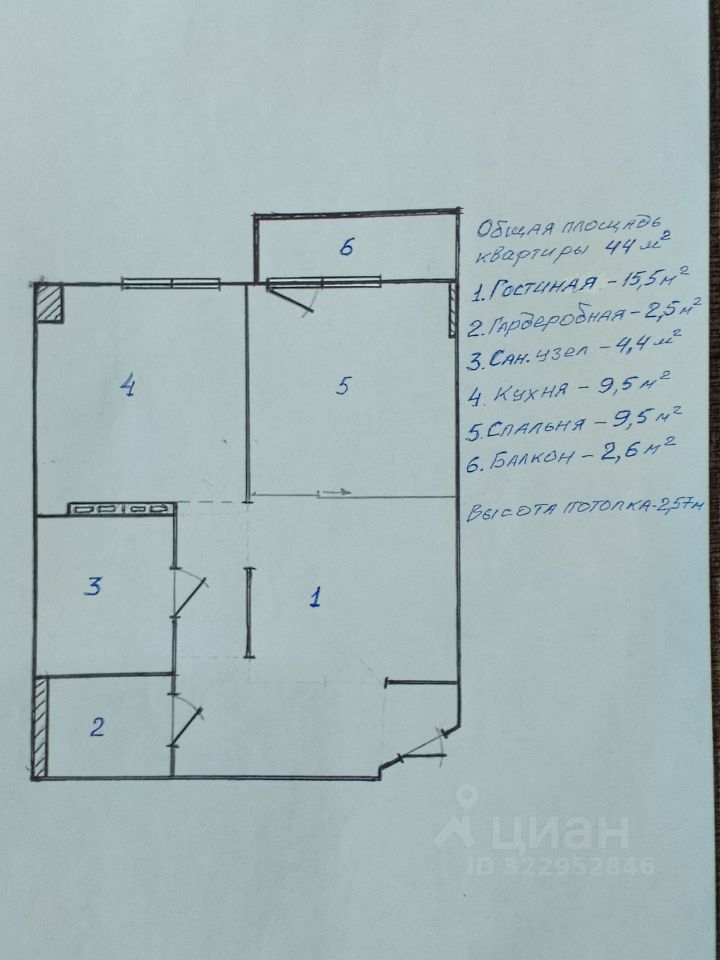 Общая площадь
квартиры 44 м²
1. Гостиная - 15,5 м²
2. Гардеробная - 2,5 м²
3. Сан. узел - 4,4 м²
4. Кухня - 9,5 м²
5. Спальня - 9,5 м²
6. Балкон - 2,6 м²
Высота потолка - 2,57 м
6
4
5
3
1
2
циан
ID 322952846